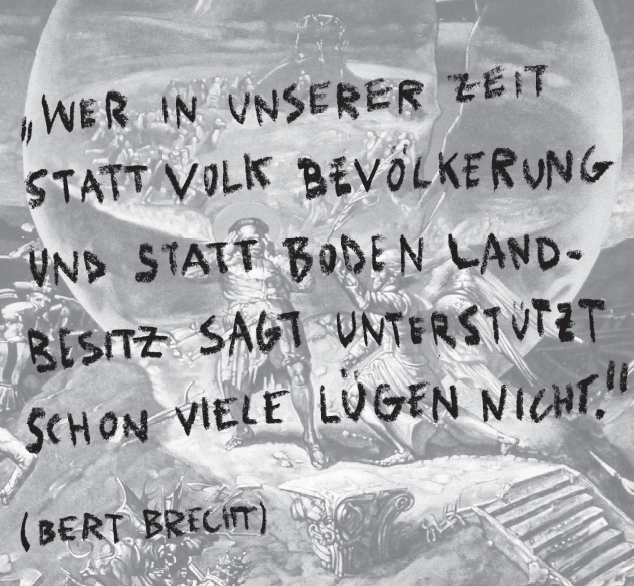 „WER IN UNSERER ZEIT
STATT VOLK BEVÖLKERUNG
UND STATT BODEN LAND-
BESITZ SAGT UNTERSTÜTZT
SCHON VIELE LÜGEN NICHT."
(BERT BRECHT)